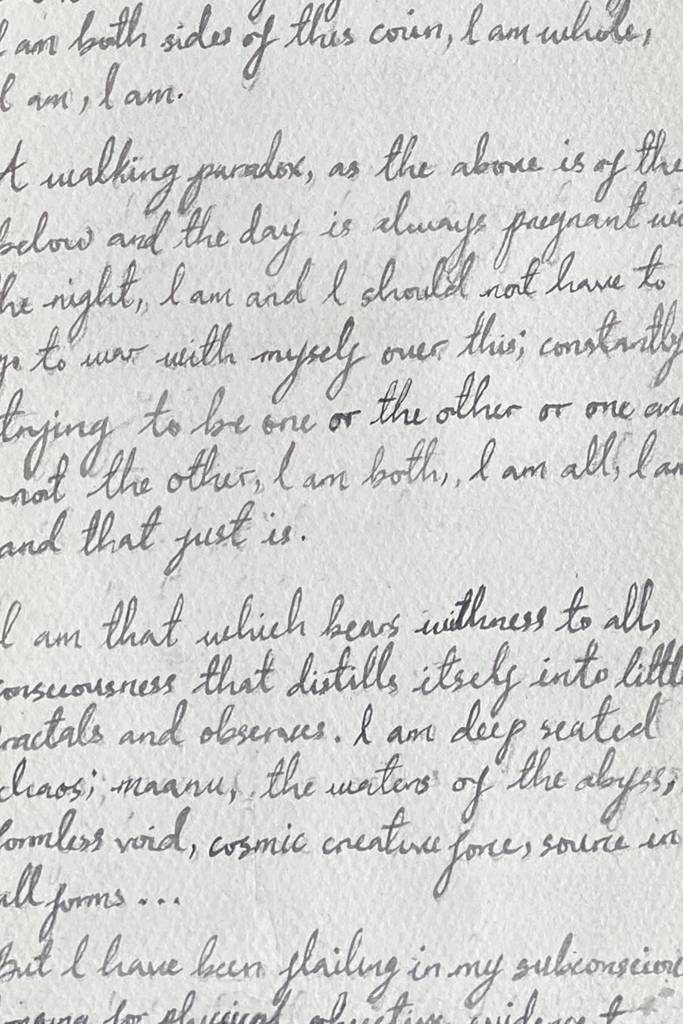 I am both sides of this coin, I am whole,
I am, I am.
A walking paradox, as the above is of the
below and the day is always pregnant wi
the night, I am and I should not have to
go to war with myself over this; constantly
trying to be one or the other or one and
not the other, I am both, I am all, I am
and that just is.
I am that which bears withness to all,
consciousness that distills itself into little
fractals and observes. I am deep seated
chaos; maanu, the waters of the abyss,
formless void, cosmic creative force, source in
all forms ...
But I have been flailing in my subconscious
for physical, objective evidence t